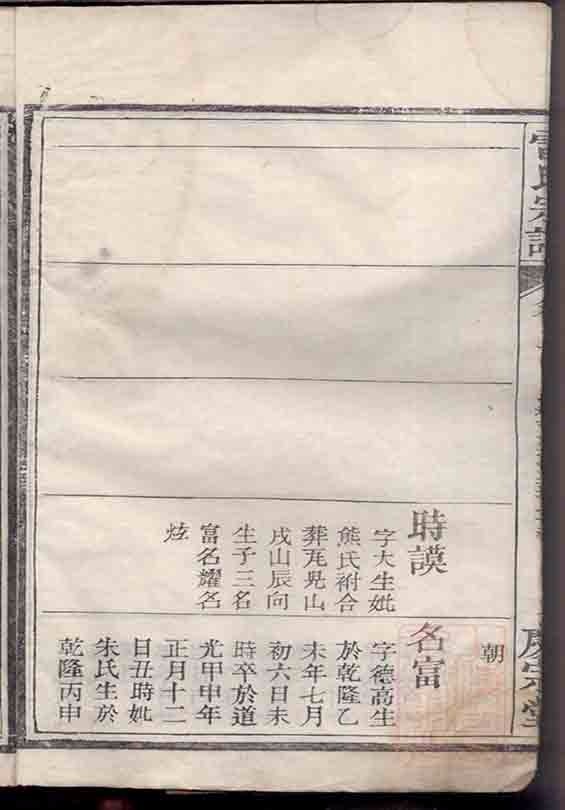 宗譜
朝
時謨
字大生妣
熊氏祔合
葬瓦晃山
戌山辰向
生子三名
富名耀名
炫
名富
字德高生
於乾隆乙
未年七月
初六日未
時卒於道
光甲申年
正月十二
日丑時妣
朱氏生於
乾隆丙申